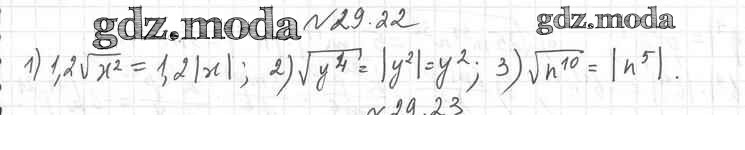 gdz.moda №29.22 gdz.moda
1) 1,2√x² = 1,2|x|; 2) √y⁴ = |y²| = y²; 3) √n¹⁰ = |n⁵|.
№29.23